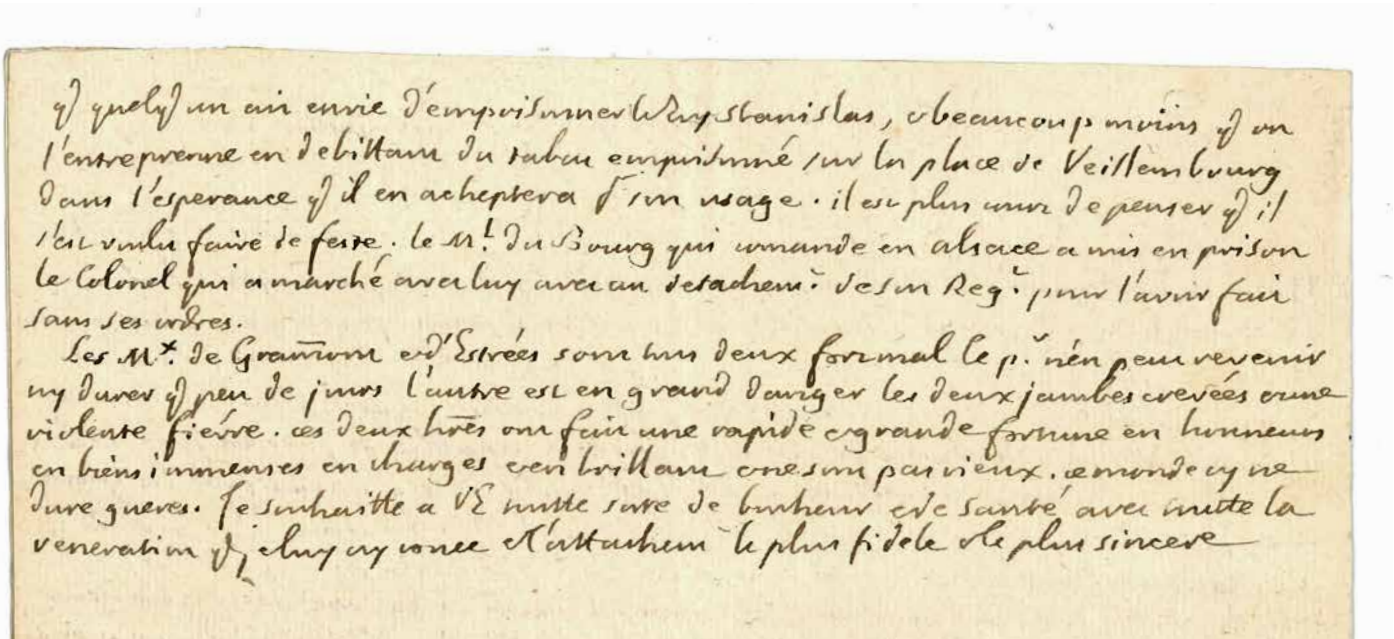 q) quelq) un ait envie d'empoisonner le Roy Stanislas, & beaucoup moins q) on
l'entreprenne en debittant du tabac empoisonné sur la place de Veissembourg
dans l'esperance q) il en acheptera p son usage. il est plus court de penser q) il
s'est voulu faire de feste. le Ml. du Bourg qui comande en alsace a mis en prison
le Colonel qui a marché avec luy avec un detachemt. de son Regt. pour l'avoir fait
sans ses ordres.
Les Mx. de Gramont et d'Estrées sont tous deux fort mal le pr. n'en peut revenir
ny durer q) peu de jours l'autre est en grand danger les deux jambes crevées & une
violente fiévre. ces deux hres ont fait une rapide & grande fortune en honneurs
en biens immenses en charges & en brillant & ne sont pas vieux. ce monde cy ne
dure gueres. Je souhaitte a VE toutte sorte de bonheur & de santé avec toutte la
veneration q) je luy ay vouée & l'attachemt le plus fidele & le plus sincere